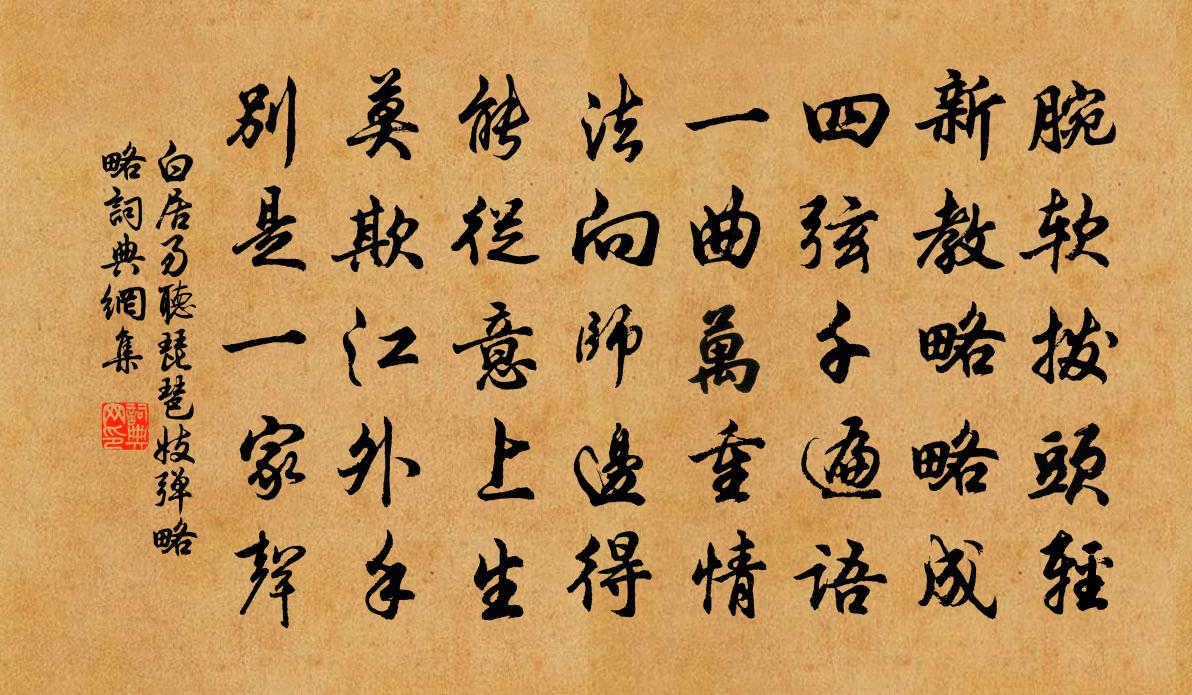 腕软拨頭輕
新教略略成
四弦千遍语
一曲萬重情
法向师邊得
能從意上生
莫欺江外手
别是一家聲
白居易聽琵琶妓弹略
略詞典網集
詞典網印